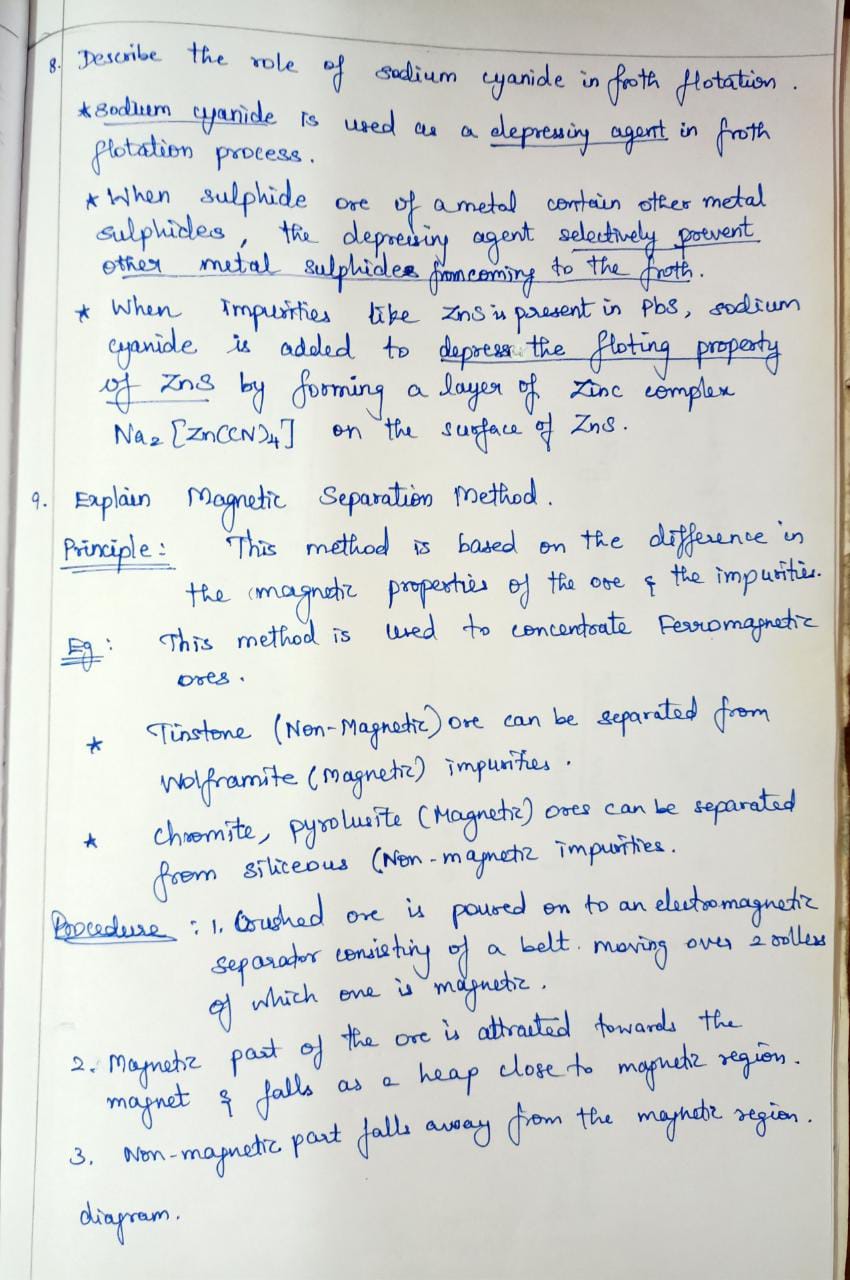 8. Describe the role of sodium cyanide in froth flotation.
* Sodium cyanide is used as a depressing agent in froth
flotation process.
* When sulphide ore of a metal contain other metal
sulphides, the depressing agent selectively prevent
other metal sulphides from coming to the froth.
* When impurities like ZnS is present in PbS, sodium
cyanide is added to depress the floting property
of ZnS by forming a layer of Zinc complex
Na2 [Zn(CN)4] on the surface of ZnS.
9. Explain Magnetic Separation Method.
Principle: This method is based on the difference in
the magnetic properties of the ore & the impurities.
Eg: This method is used to concentrate Ferromagnetic
ores.
* Tinstone (Non-Magnetic) ore can be separated from
Wolframite (Magnetic) impurities.
* Chromite, pyrolusite (Magnetic) ores can be separated
from siliceous (Non-magnetic impurities.
Procedure: 1. Crushed ore is poured on to an electromagnetic
separator consisting of a belt. moving over 2 rollers
of which one is magnetic.
2. Magnetic part of the ore is attracted towards the
magnet & falls as a heap close to magnetic region.
3. Non-magnetic part falls away from the magnetic region.
diagram.